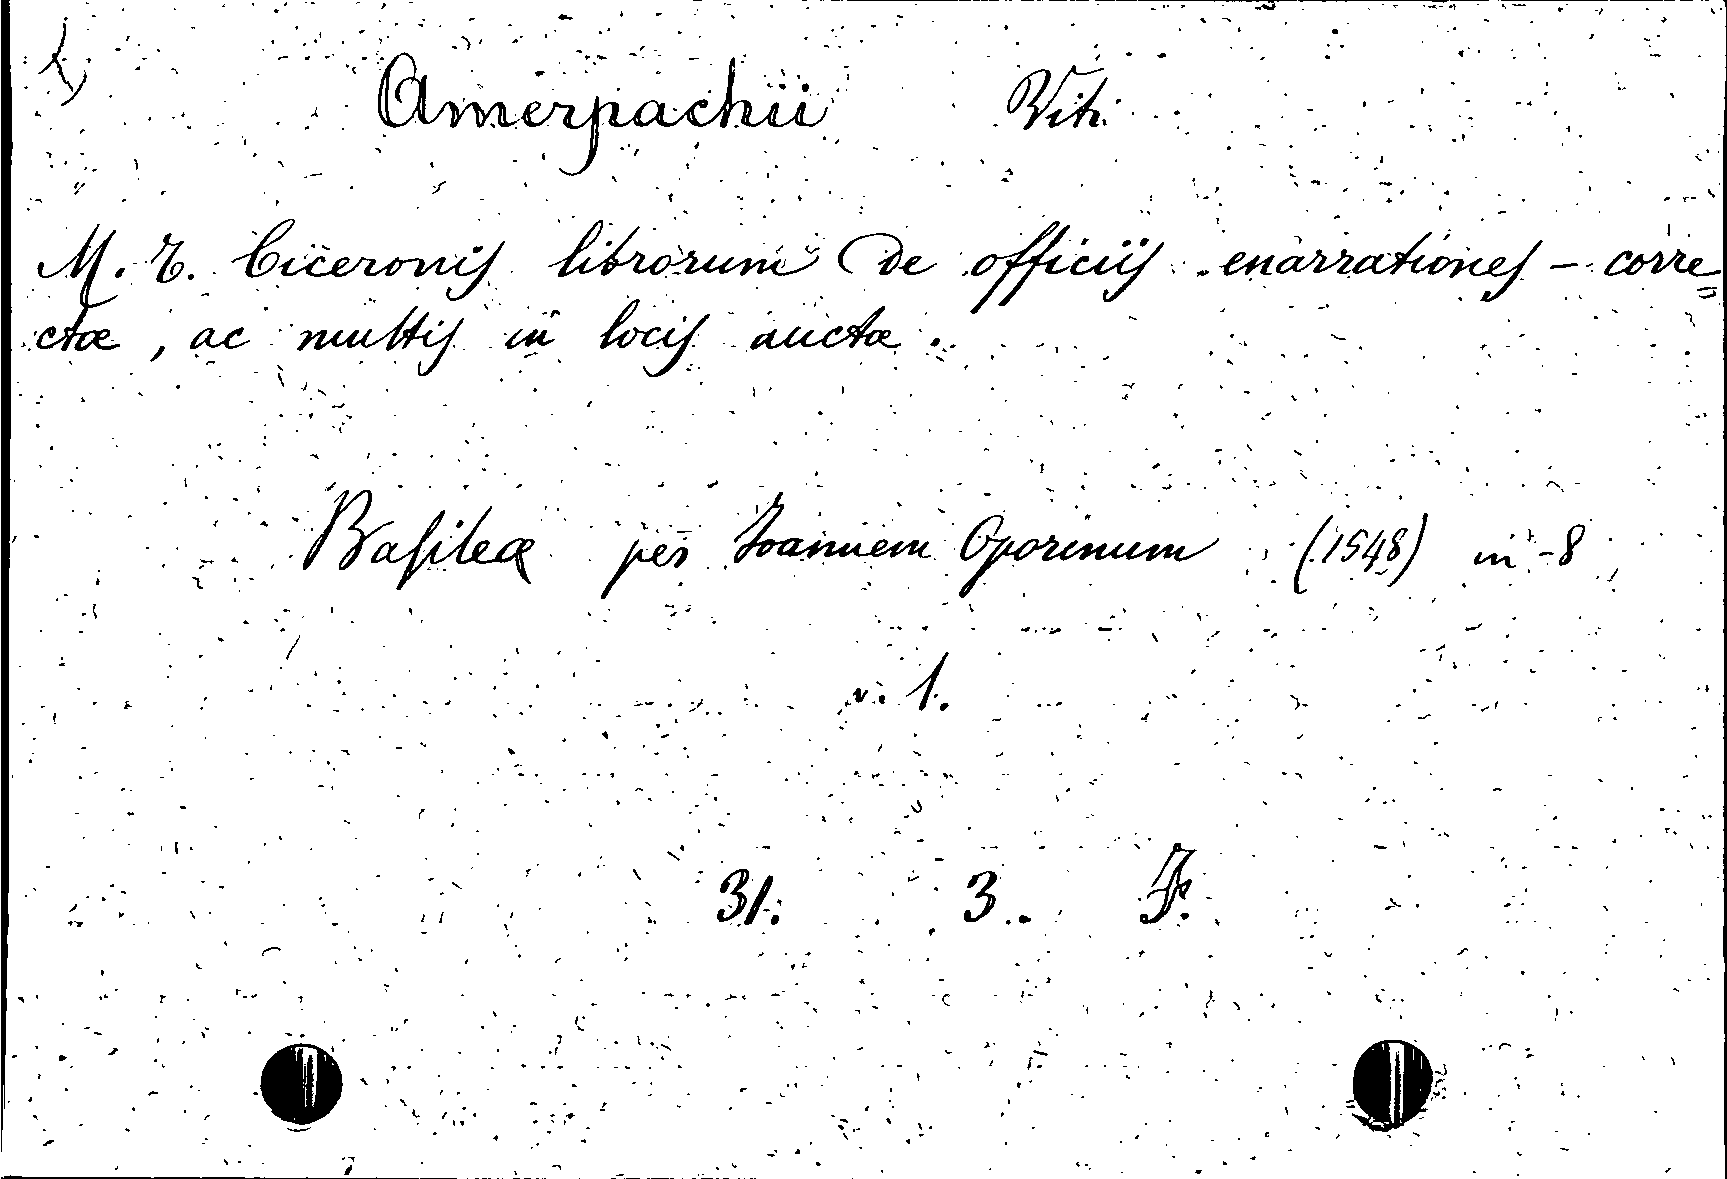 Amerpachii Viti
M. T. Ciceronis librorum de officiis enarrationes – corre=
ctæ, ac multis in locis auctæ.
Basileæ per Ioannem Oporinum (1548) in-8
v. 1.
31. 3. F.